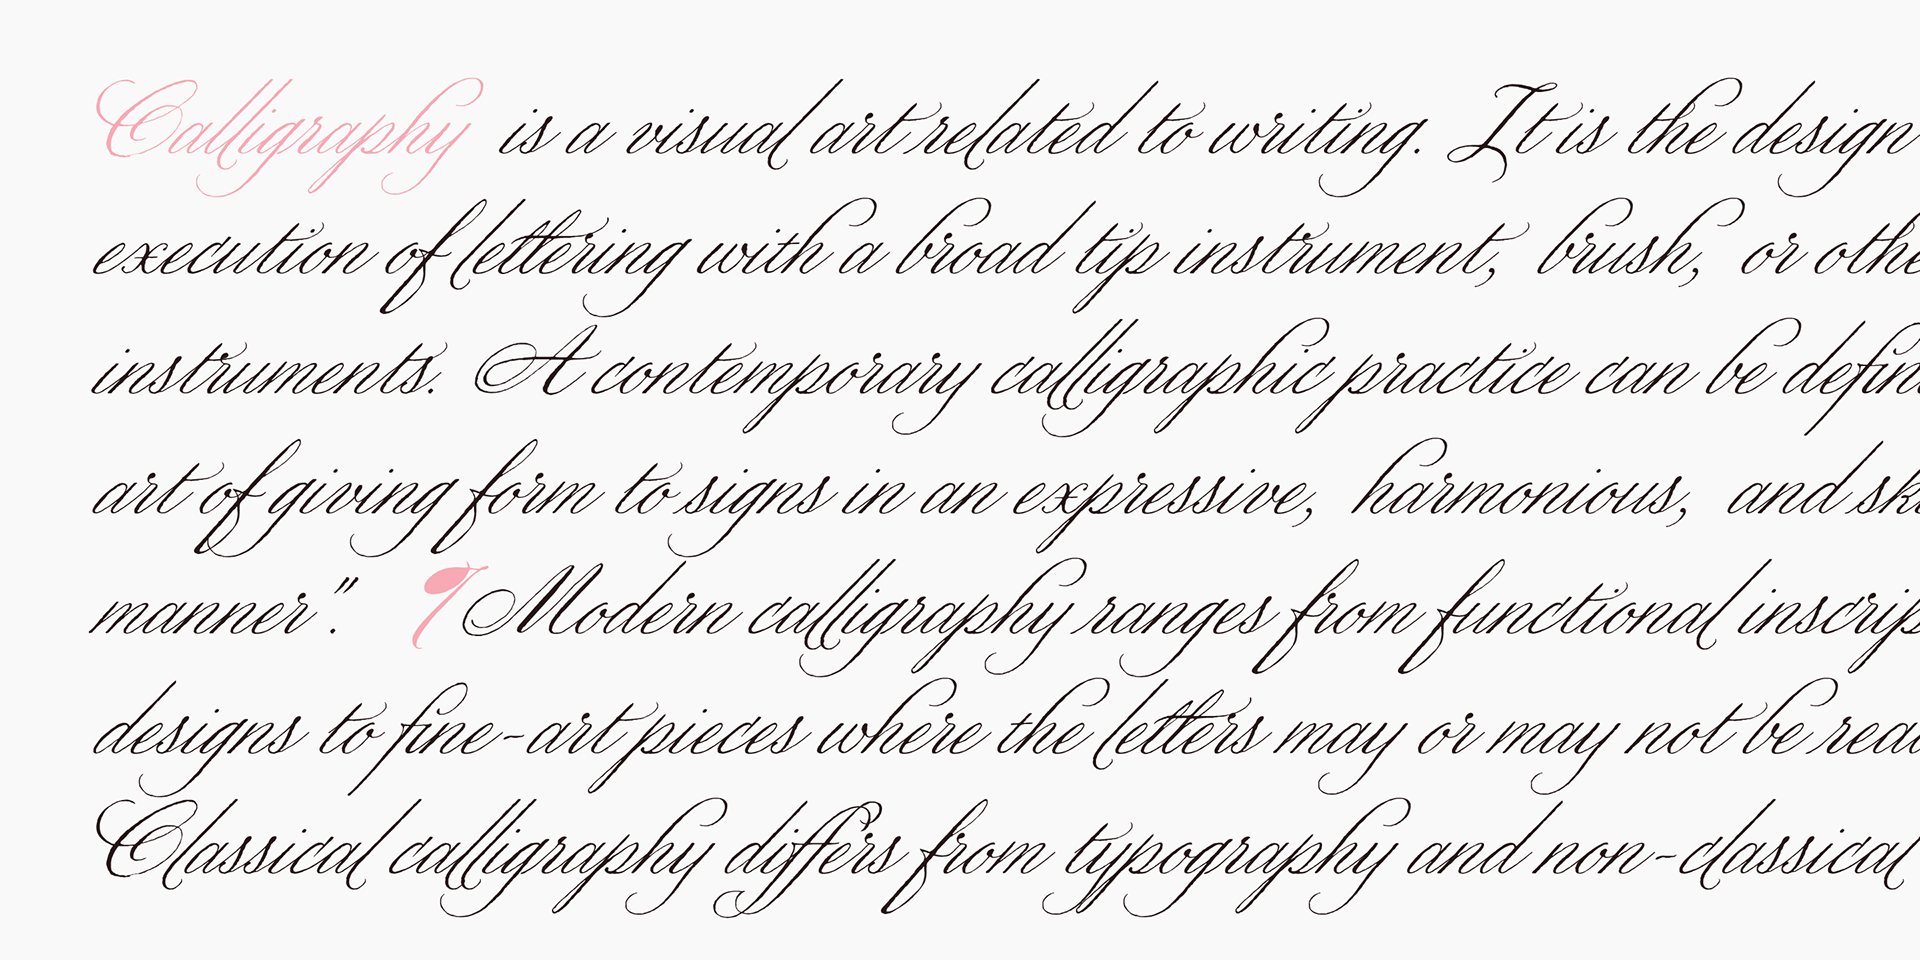 Calligraphy is a visual art related to writing. It is the design
execution of lettering with a broad tip instrument, brush, or othe
instruments. A contemporary calligraphic practice can be defin
art of giving form to signs in an expressive, harmonious, and sk
manner". ¶ Modern calligraphy ranges from functional inscrip
designs to fine-art pieces where the letters may or may not be rea
Classical calligraphy differs from typography and non-classical